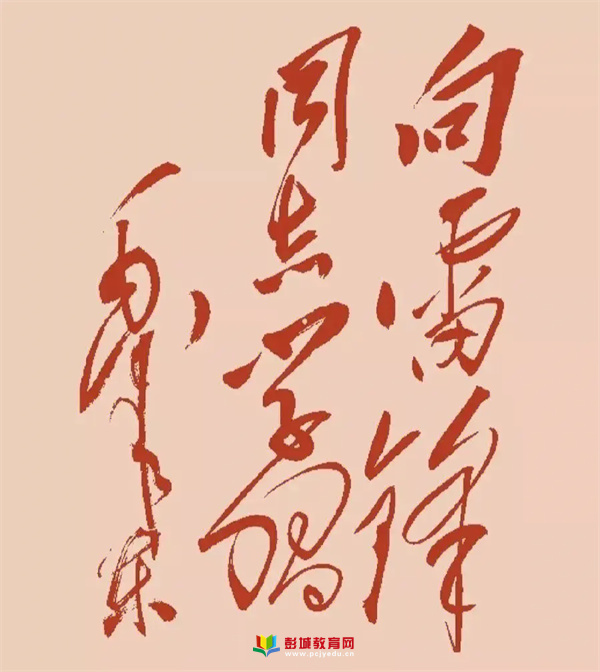 向雷锋
同志学习
毛泽东
彭城教育网
www.pcjyedu.cn